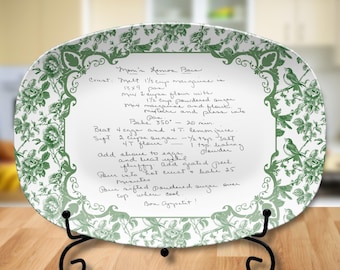 Mom's Lemon Bars
Crust: Melt 1½ cup margarine in
13x9 pan
Mix 2 cups flour with
½ cup powdered sugar
Mix margarine and flour
mixture and press into
pan
Bake 350° - 20 min
Beat 4 eggs and 4 T. lemon juice
Sift 2 cups sugar
4 T flour 1 tsp baking
powder
Add above to eggs
and beat until
fluffy. Add grated peel
Pour into hot crust & bake 25
minutes
Pour sifted powdered sugar over
top when cool
Bon Appetit!